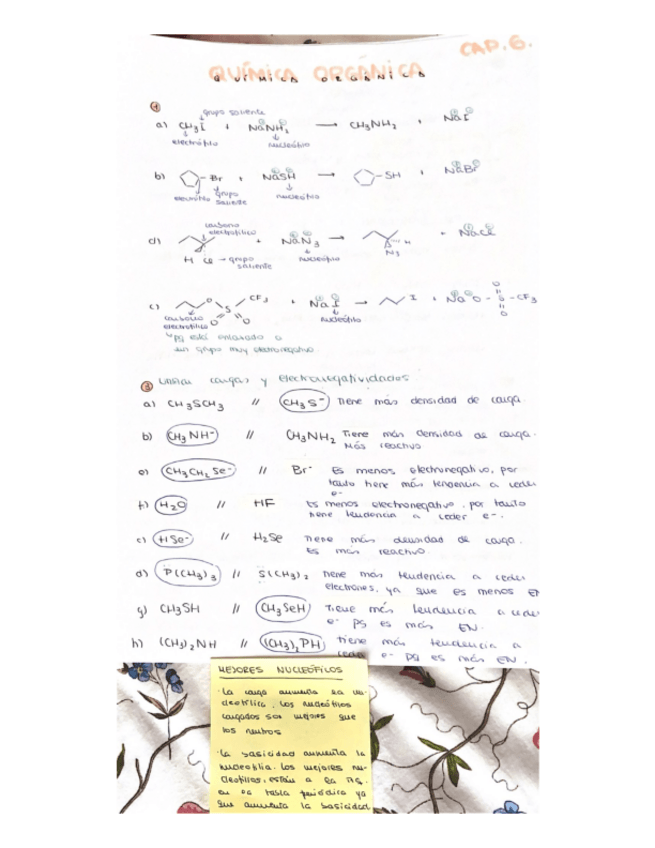 CAP. 6.
QUÍMICA ORGÁNICA
①
grupo saliente
a) CH₃I + Na⊕NH₂⊖ → CH₃NH₂ + Na⊕I⊖
electrófilo nucleófilo
b) Br + Na⊕SH⊖ → SH + Na⊕Br⊖
electrófilo grupo saliente nucleófilo
carbono electrofílico
d) H Cl + Na⊕N₃⊖ → H N₃ + Na⊕Cl⊖
grupo saliente nucleófilo
c) O S O O CF₃ + Na⊕I⊖ → I + Na⊕ ⊖O - S - CF₃ O O
carbono electrofílico nucleófilo
pq está enlazado a
un grupo muy electronegativo.
③ cargas y electronegatividades
a) CH₃SCH₃ // CH₃S⁻ Tiene más densidad de carga.
b) CH₃NH⁻ // CH₃NH₂ Tiene más densidad de carga.
Más reactivo
e) CH₃CH₂Se⁻ // Br⁻ Es menos electronegativo, por
tanto tiene más tendencia a ceder
e⁻
f) H₂O // HF Es menos electronegativo, por tanto
tiene tendencia a ceder e⁻.
c) HSe⁻ // H₂Se Tiene más densidad de carga.
Es más reactivo.
d) P(CH₃)₃ // S(CH₃)₂ Tiene más tendencia a ceder
electrones, ya que es menos EN
g) CH₃SH // CH₃SeH Tiene más tendencia a ceder
e⁻ pq es más EN.
h) (CH₃)₂NH // (CH₃)₂PH tiene más tendencia a
ceder e⁻ pq es más EN.
MEJORES NUCLEÓFILOS
· La carga aumenta la nu-
cleofilia. Los nucleófilos
cargados son mejores que
los neutros
· La basicidad aumenta la
nucleofilia. Los mejores nu-
cleófilos, están a la
en la tabla periódica ya
que aumenta la basicidad